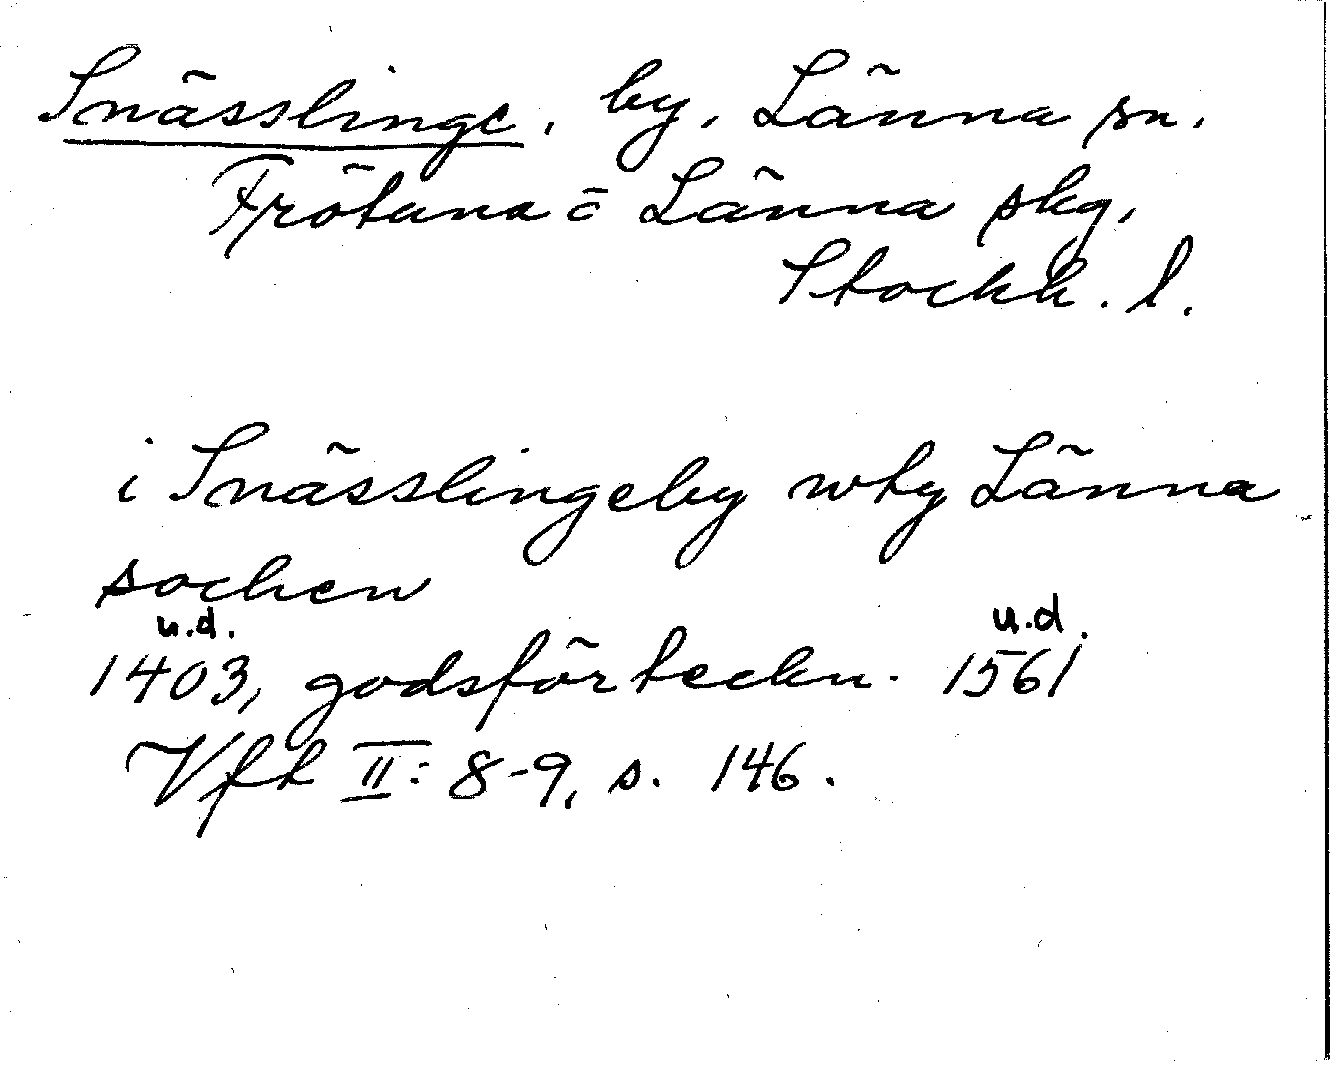 Snässlinge, by, Länna sn.
Frötuna o Länna skg,
Stockh. l.
i Snässlingeby wty Länna
sochen
u.d. u.d.
1403, godsförteckn. 1561
Vfh II: 8-9, s. 146.